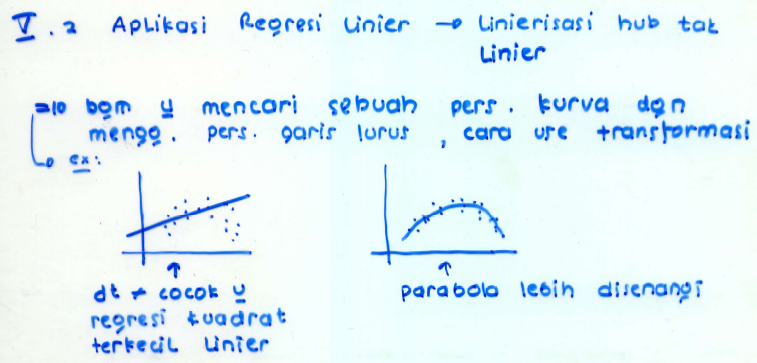 V.2 Aplikasi Regresi Linier → Linierisasi hub tak
Linier
⇒ bgm u mencari sebuah pers. kurva dgn
mengg. pers. garis lurus, cara use transformasi
→ ex:
dt ≠ cocok u
regresi kuadrat
terkecil Linier
parabola lebih disenangi